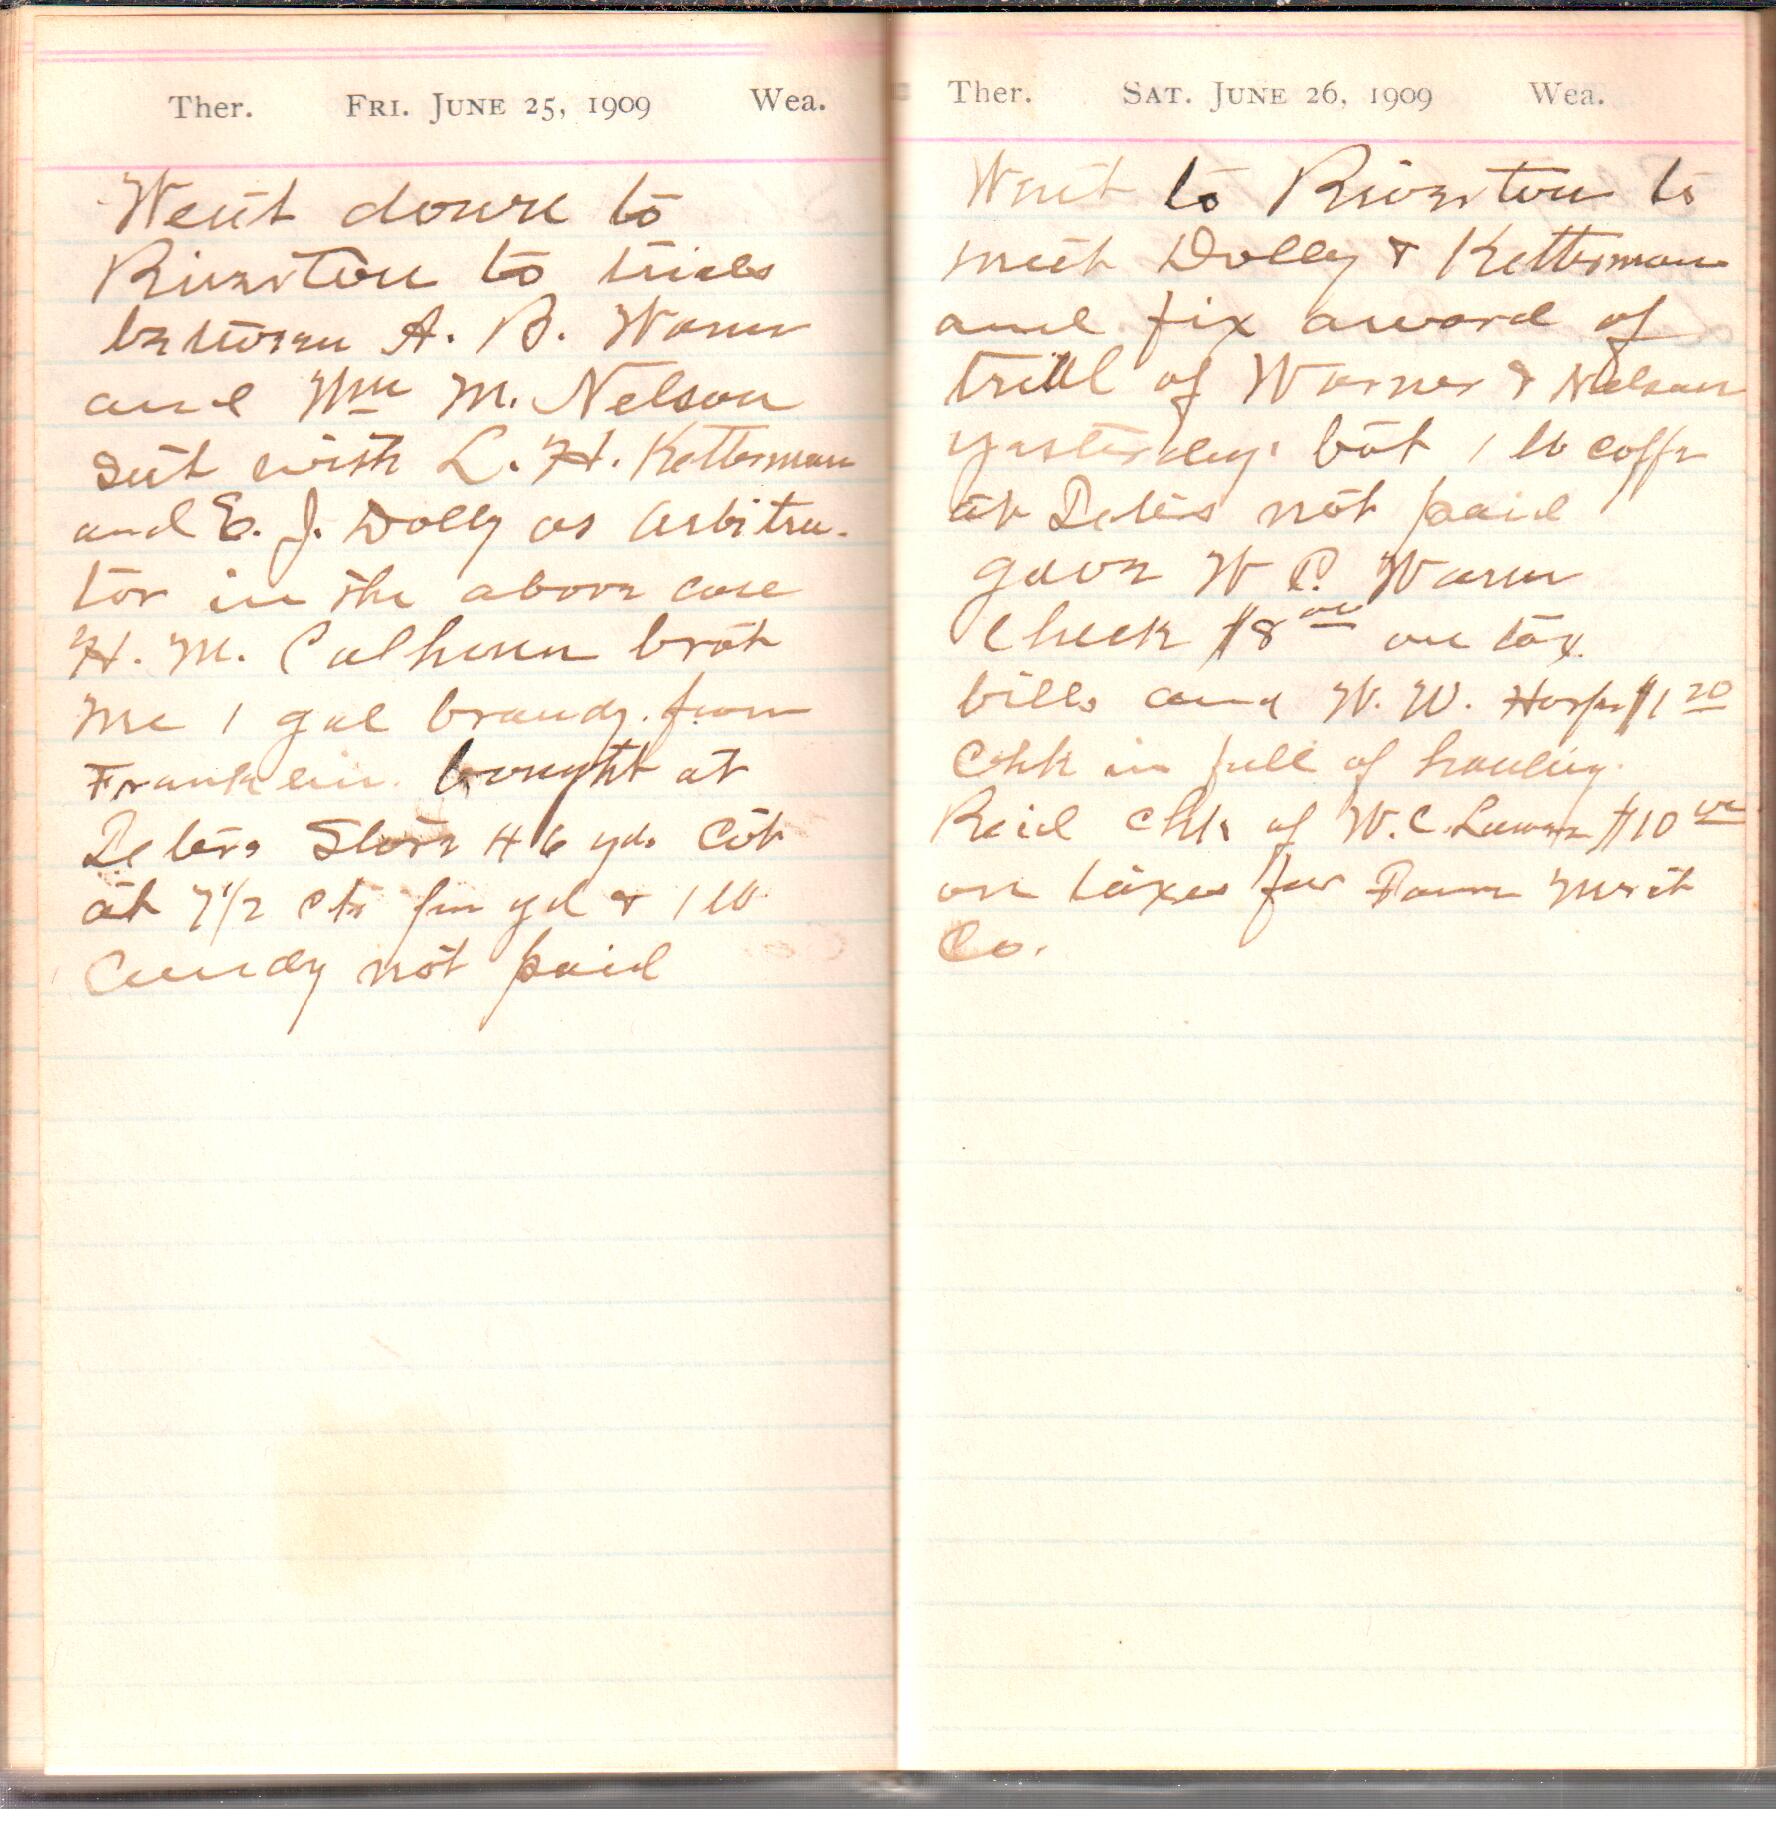 Ther. FRI. JUNE 25, 1909 Wea.
Went down to
Riverton to trials
between A. B. Warner
and Wm M. Nelson
Set with L. H. Ketterman
and E. J. Dolly as Arbitra-
tor in the above case
H. M. Calhoun brot
Me 1 gal brandy from
Franklin. bought at
Deters Store 46 yds Cot
at 7 1/2 cts per yd & 1 lb
Candy not paid
Ther. SAT. JUNE 26, 1909 Wea.
Went to Riverton to
meet Dolly & Ketterman
and fix award of
triall of Warner & Nelson
yesterday. bot 1 lb coffe
at Deters not paid
gave W P. Warner
Check $8 00 on tax
bills and W. W. Harper $1 20
Chk in full of hauling.
Reid chk of W. C. $10 00
on taxes for Farm
Co.